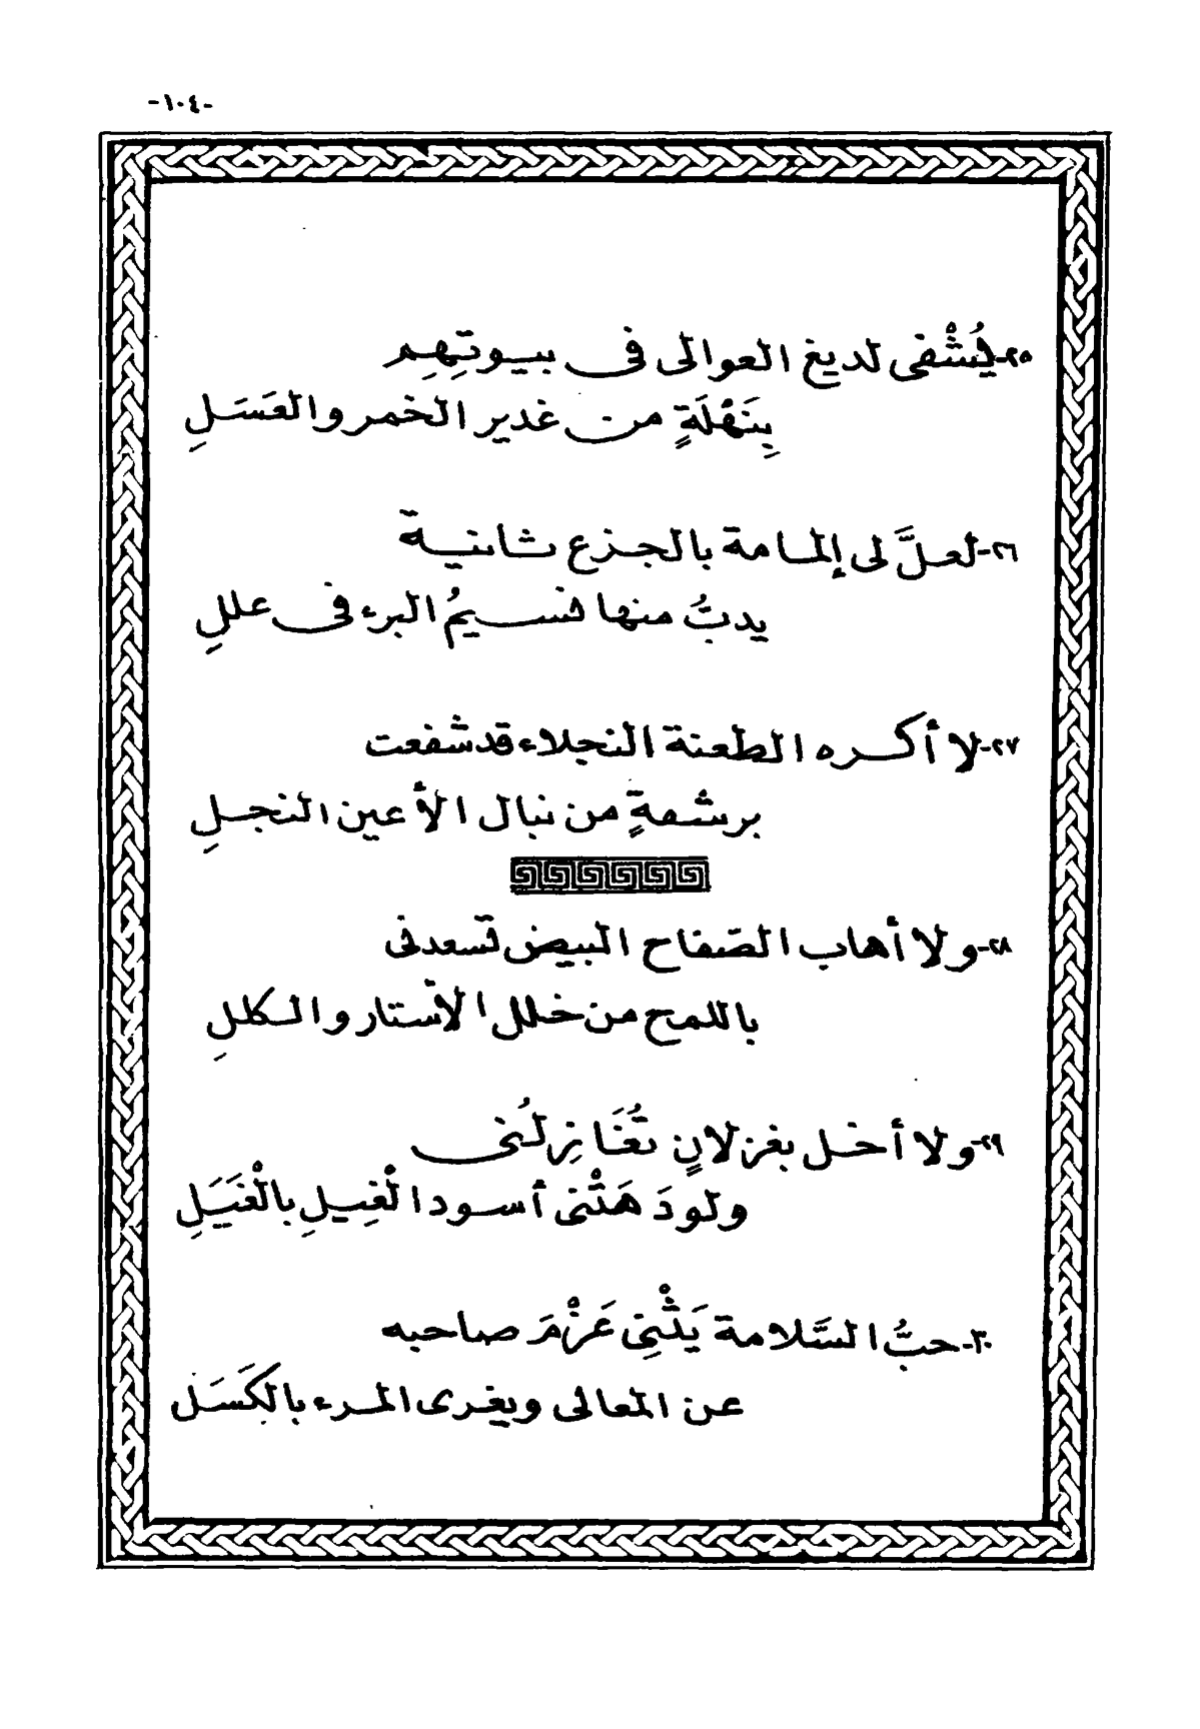 -١٠٤-
٢٥-يُشْفى لديغ العوالى فى بيوتِهِم
بِنَهْلَةٍ من غدير الخمر والعَسَلِ
٢٦-لعلَّ لى إلمامة بالجزع ثانية
يدبُّ منها نسيمُ البرء فى عللِ
٢٧-لا أكره الطعنة النجلاء قد شفعت
برشفةٍ من نبال الأعين النجلِ
٢٨-ولا أهاب الصّفاح البيض تسعدنى
باللمح من خلل الأستار والكللِ
٢٩-ولا أخل بغزلانٍ تُغَازِلُنى
ولو دَهَتْنى أسود الْغِيلِ بالْغَيَلِ
٣٠-حبُّ السَّلامة يَثْنِى عَزْمَ صاحبه
عن المعالى ويغرى المرء بالكَسَل